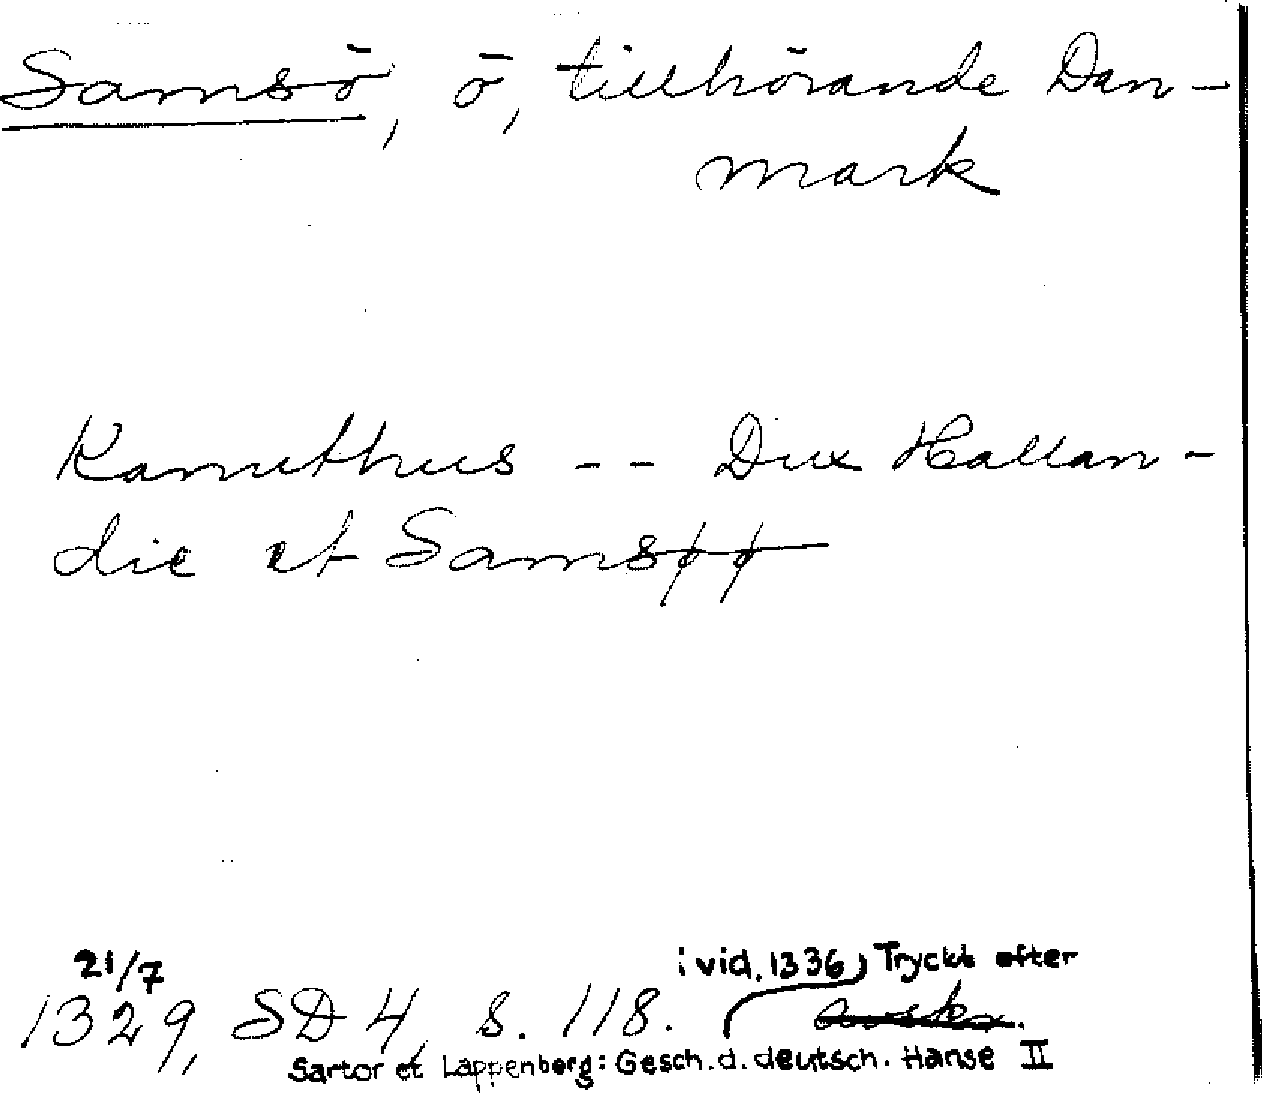 Samsö, ö, tillhörande Dan-
mark
Kanuthus -- Dux Hallan-
die et Samsøø
21/7 i vid. 1336) Tryckt efter
1329, SD 4, s. 118.
Sartor et Lappenberg: Gesch. d. deutsch. Hanse II